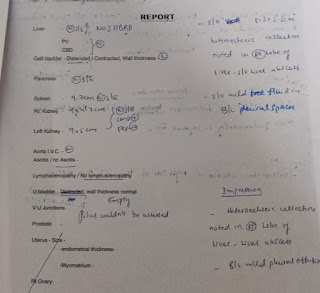 REPORT
Liver (N) S/E, No IHBRD
PV
CBD (N)
Gall bladder - Distended / Contracted, Wall thickness
Pancreas (N) S/E
Spleen 9.7cm (N) S/E
Rt. Kidney
Left Kidney 9.5 cm
Aorta I.V.C. - (N)
Ascitis / no Ascitis -
Lymphadenopathy / No lymph-adenopathy
U.bladder - Distended, wall thickness normal
Empty
V-U Junctions
Pelvis couldn't be assessed
Prostate
Uterus - Size -
-endometrial thickness-
-Myometrium -
Rt Ovary-
heteroechoic collection
noted in (Rt) lobe of
liver - s/o liver abscess
- s/o mild free fluid in
B/L pleural spaces
Impression
- Heteroechoic collection
noted in (Rt) lobe of
liver - liver abscess
- B/L mild pleural effusion